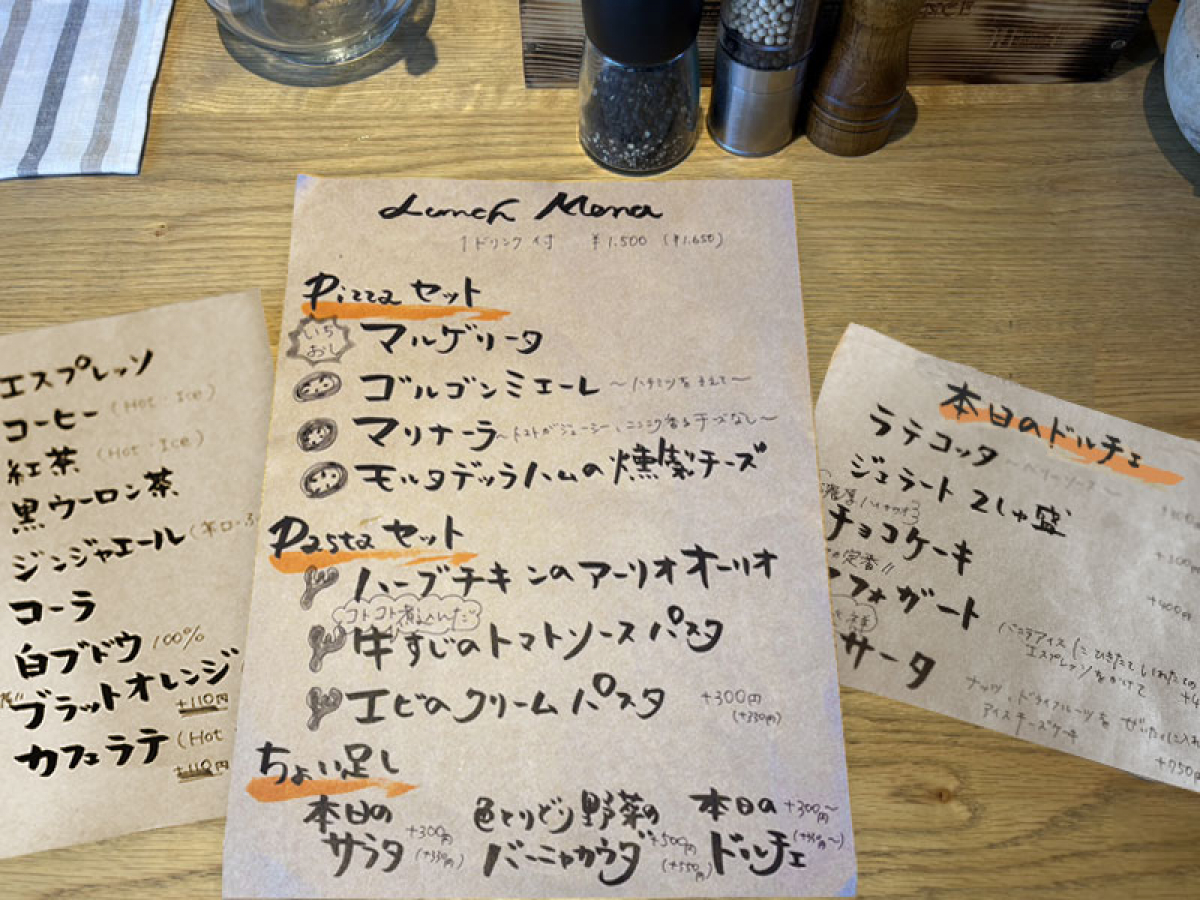 Lunch Menu
1ドリンク付 ¥1,500 (¥1,650)
Pizza セット
いち
おし
マルゲリータ
ゴルゴンミエーレ 〜ハチミツをそえて〜
マリナーラ 〜トマトがジューシー、ニンニク香るチーズなし〜
モルタデッラハムの燻製チーズ
Pasta セット
ハーブチキンのアーリオオーリオ
コトコト煮込んだ
牛すじのトマトソースパスタ
エビのクリームパスタ +300円
(+330円)
ちょい足し
本日の
サラダ +300円
(+330円)
色とりどり野菜の
バーニャカウダ +500円
(+550円)
本日の +300円〜
ドルチェ (+330円〜)
エスプレッソ
コーヒー (Hot・Ice)
紅茶 (Hot・Ice)
黒ウーロン茶
ジンジャエール (辛口・
コーラ
白ブドウ 100%
ブラットオレンジ
+110円
カフェラテ (Hot
+110円
本日のドルチェ
ラテコッタ 〜ベリーソース〜
ジェラート 2しゅ盛
+300円
チョコケーキ
+400円
の定番!!
フォガート
バニラアイスにひきたていれたての
エスプレッソをかけて
サータ
ナッツ、ドライフルーツをぜいたくに入れ
アイスチーズケーキ
+750円